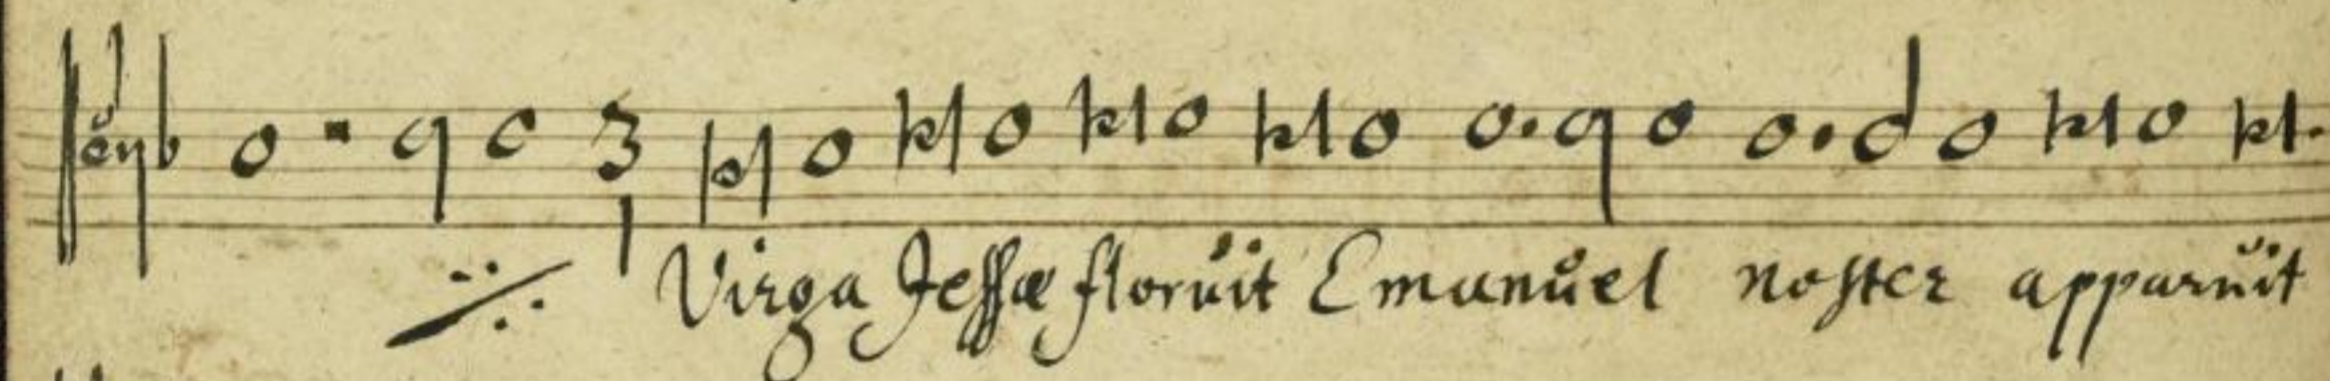 Virga Jessæ floruit Emanuel noster apparuit